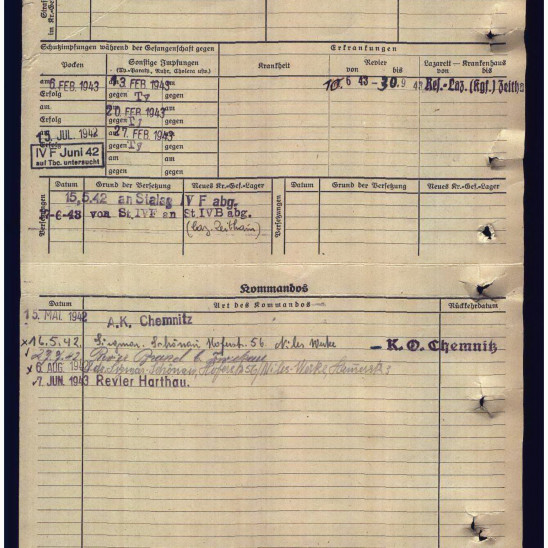 in Kr.-Ge
Schutzimpfungen während der Gefangenschaft gegen
Erkrankungen
Pocken
Sonstige Impfungen
(Ty.-Parath., Ruhr, Cholera usw.)
Krankheit
Revier
von bis
Lazarett – Krankenhaus
von bis
am 6. FEB. 1943
am 13. FEB. 1943 am
10. 6 43 – 30. 9 43 Res.-Laz. (Kgf.) Zeitha
Erfolg
gegen Ty gegen
am
20. FEB. 1943 am
Erfolg
gegen Ty gegen
15. JUL. 1942
am 27. FEB. 1943 am
Erfolg
gegen Ty gegen
IV F Juni 42
auf Tbc. untersucht
am am
gegen gegen
Versetzungen
Datum
Grund der Versetzung
Neues Kr.-Gef.-Lager
Versetzungen
Datum
Grund der Versetzung
Neues Kr.-Gef.-Lager
15.5.42 an Stalag IV F abg.
-6-43 von St. IVF an St. IVB abg.
(Laz. Zeithain)
Kommandos
Datum
Art des Kommandos
Rückkehrdatum
15. MAI. 1942 A.K. Chemnitz
x 16.5.42. Siegmar-Schönau Hoferstr. 56 Niles Werke – K.O. Chemnitz
6. AUG. 1942 Siegmar-Schönau, Hoferstr. 56/Niles-Werke,
7. JUN. 1943 Revier Harthau.